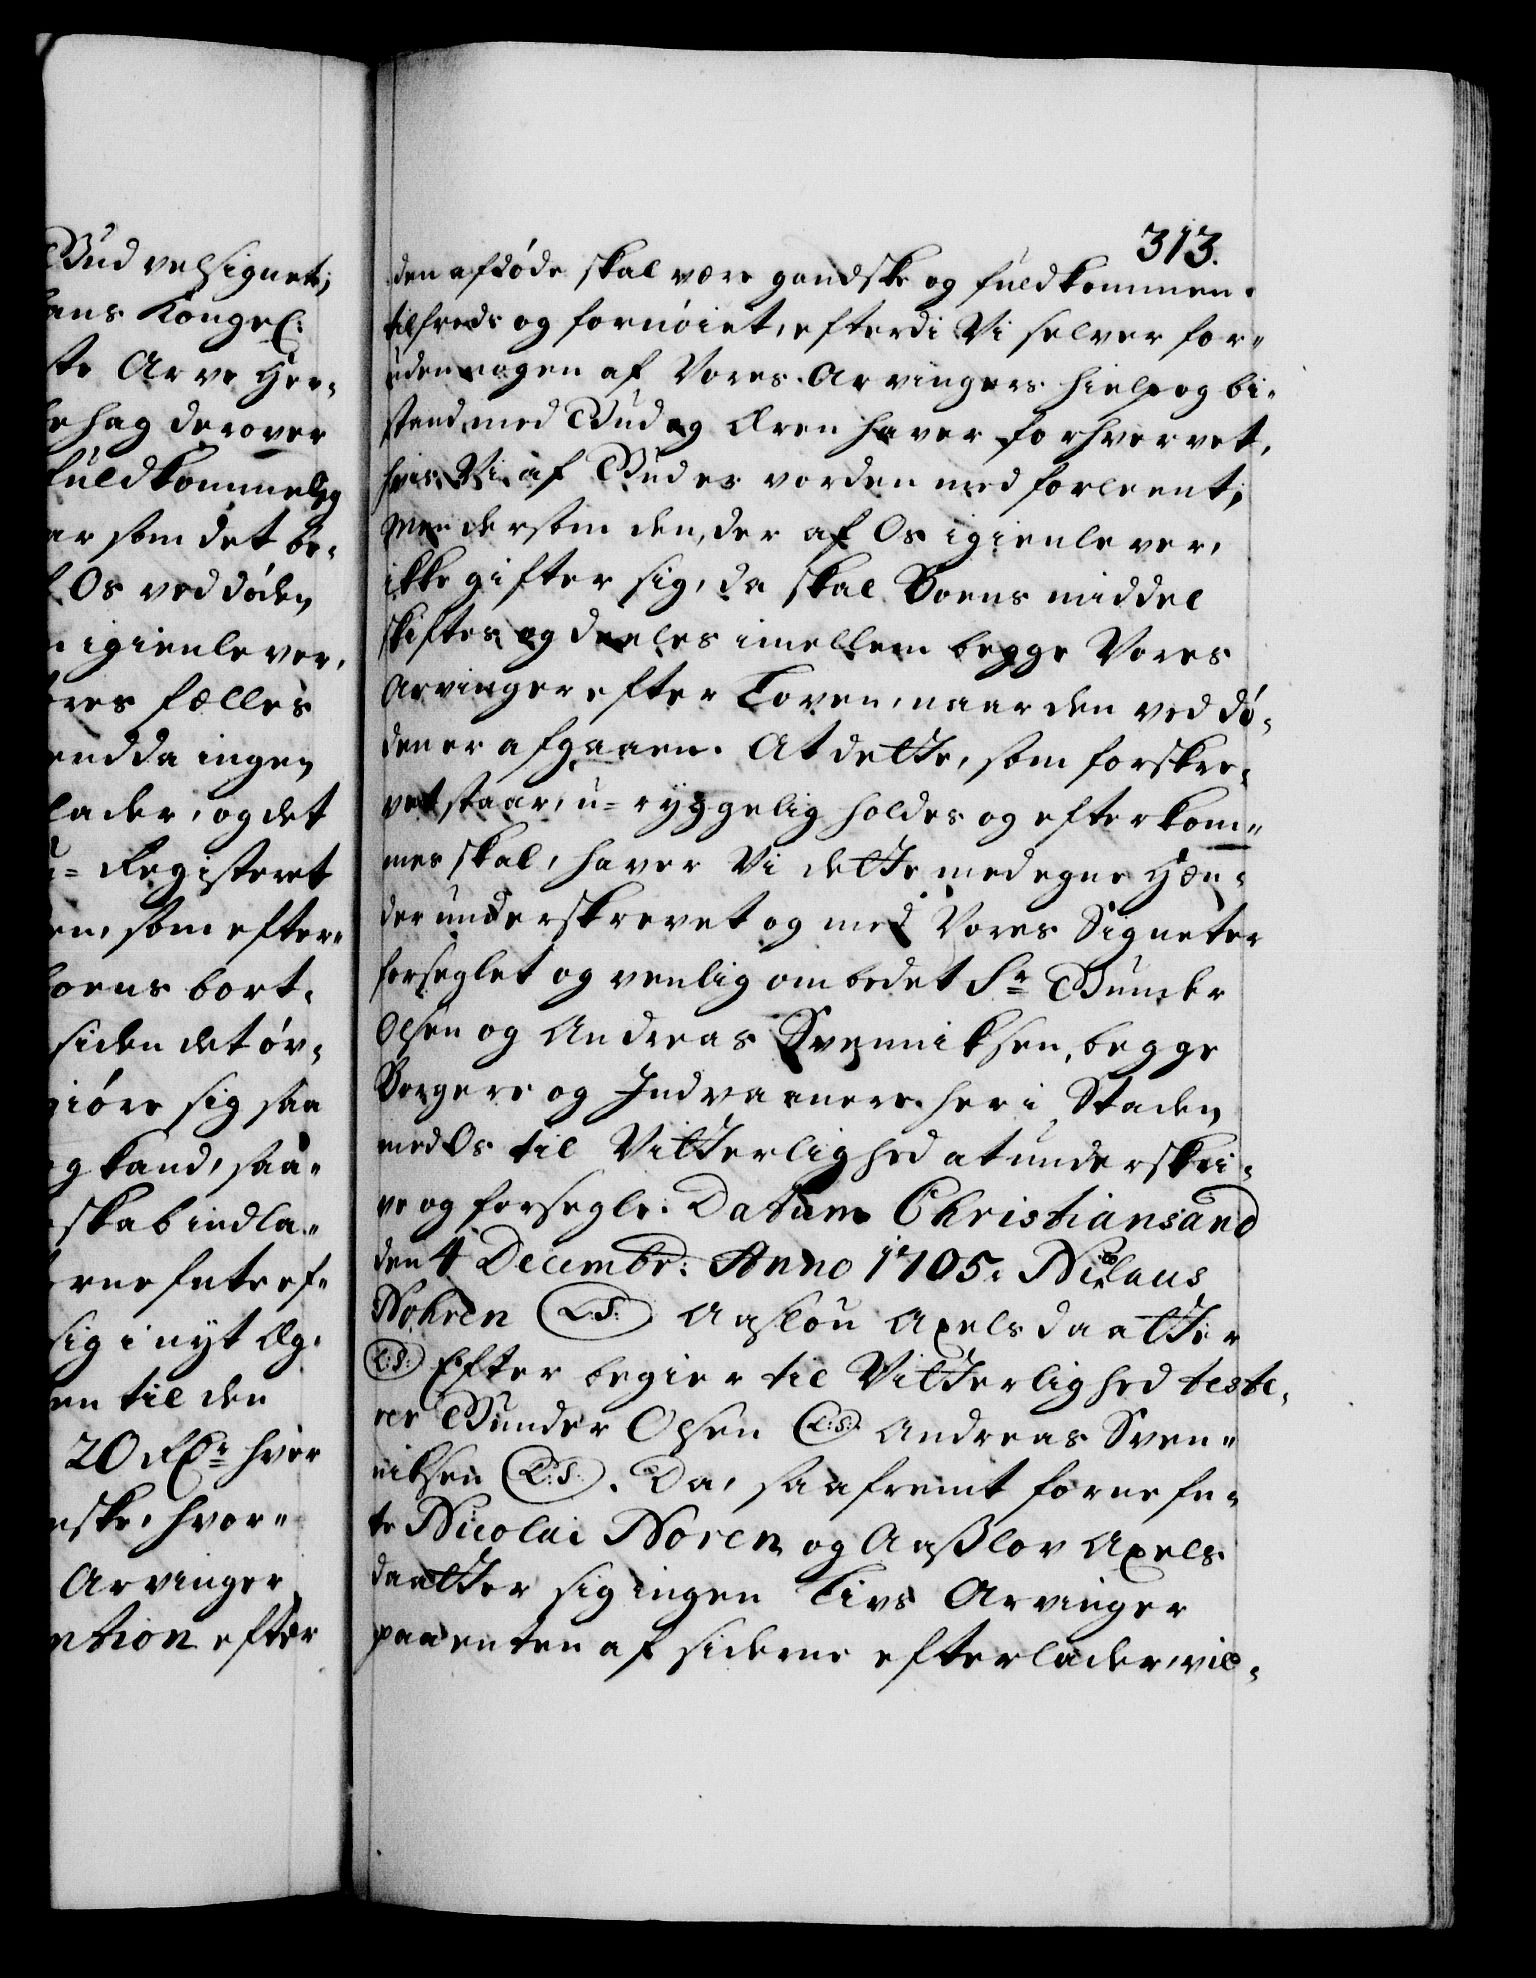 Gud velsignet;
hans Kongel:
ste Arve Her-
behag derover
fuldkommelig
ar som det be-
f Os ved døden
n igienlever,
res fælles
endda ingen
lader, og det
u= Registeret
en, som efter-
boens bort-
siden det øv-
giøre sig saa
og kand, saa-
skab indla-
erne fnte ef-
sig i nyt Æg-
en til den
20 Rdr hver
nske, hvor-
Arvinger
ntion efter
313.
den afdøde skal være gandske og fuldkommen
tilfreds og fornøiet, efterdi Vi selver for-
uden nogen af Vores Arvingers hielp og bi-
stand med Gud og Æren haver forhvervet,
hvis Vi af Gud er vorden med forleent;
Men dersom den, der af Os igienlever,
ikke gifter sig, da skal Boens middel
skiftes og deeles imellem begge Vores
Arvinger efter Loven, naar den ved dø-
den er afgaaen. At dette, som forskre-
vet staar, u-ryggelig holdes og efterkom-
mes skal, haver Vi dette med egne Hæn-
der underskrevet og med Vores Signeter
forseglet og venlig ombedet Sr Gunder
Olsen og Andreas Svenniksen, begge
Borgere og Indvaanere her i Staden
med Os til Vitterlighed at underskri-
ve og forsegle. Datum Christiansand
den 4 Decembr: Anno 1705. Niclaus
Nohren L.S. Aaslou Axelsdaatter
L:S: Efter begier til Vitterlighed teste-
rer Gunder Olsen L:S: Andreas Sven-
niksen L:S:. Da, saafremt fornefn-
te Nicolai Noren og Aaßlov Axels
daatter sig ingen Livs Arvinger
paa enten af siderne efterlader, vil-